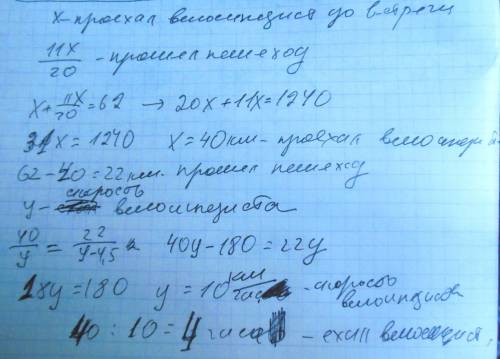 x - проехал велосипедист до встречи
11x/20 - прошел пешеход
x + 11x/20 = 62 → 20x + 11x = 1240
31x = 1240 x = 40 км - проехал велосипедист
62 - 40 = 22 км. прошел пешеход
y - скорость велосипедиста
40/y = 22/y-4,5 40y - 180 = 22y
18y = 180 y = 10 км/час - скорость велосипедиста
40 : 10 = 4 часа - ехал велосипедист,